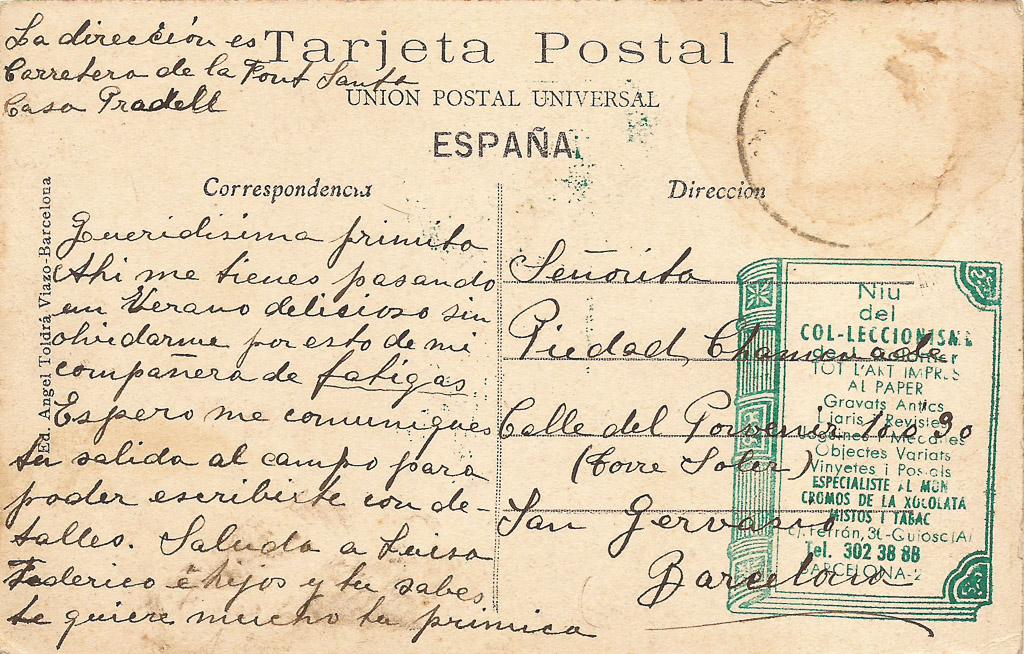 La dirección es
Carretera de la Font Santa
Casa Pradell
Tarjeta Postal
UNION POSTAL UNIVERSAL
ESPAÑA
Correspondencia
Ed. Angel Toldrá Viazo-Barcelona
Queridisima primita
Ahi me tienes pasando
un Verano delicioso sin
olvidarme por esto de mi
compañera de fatigas
Espero me comuniques
tu salida al campo para
poder escribirte con de-
talles. Saluda a Luisa
Federico é hijos y tu sabes
te quiere mucho tu primica
Dirección
Señorita
Piedad
Calle del Porvenir
(Torre Soler)
San Gervasio
Barcelona
Niu
del
COL-LECCIONISME
TOT L'ART IMPRÈS
AL PAPER
Gravats Antics
Diaris i Revistes
Objectes Variats
Vinyetes i Postals
ESPECIALISTE AL MON
CROMOS DE LA XOCOLATA
MISTOS I TABAC
Tel. 302 38 88
BARCELONA-2